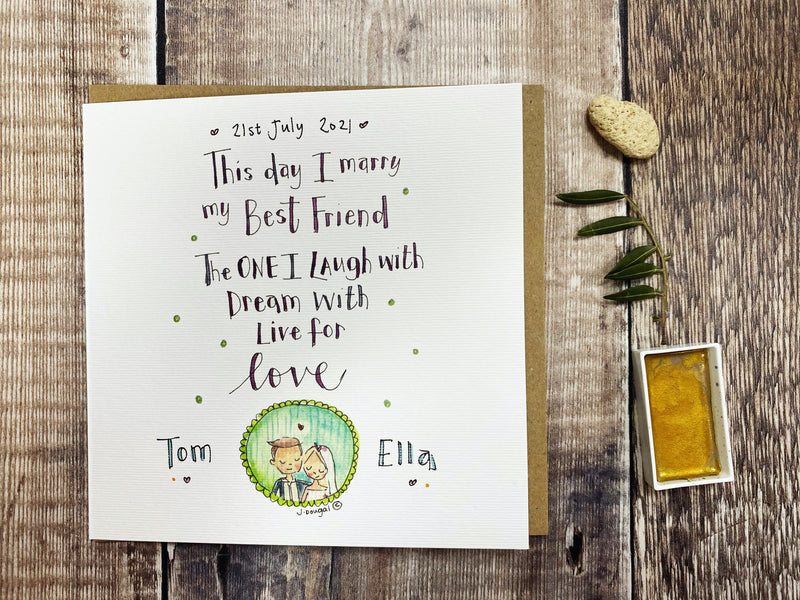 21st July 2021
This day I marry
my Best Friend
The ONE I Laugh with
Dream with
Live for
love
Tom
Ella
J.Dougal ©